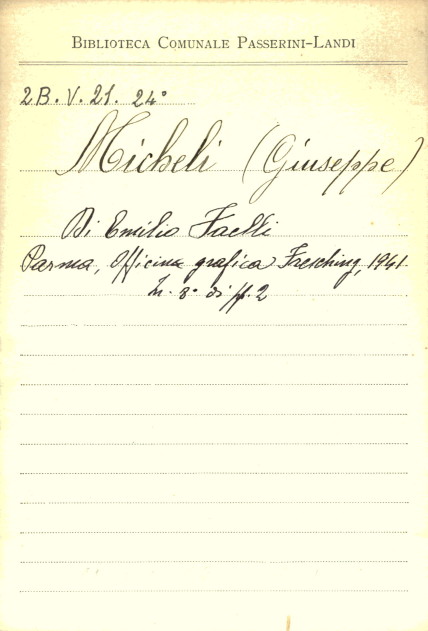 BIBLIOTECA COMUNALE PASSERINI-LANDI
2B. V. 21. 24°
Micheli (Giuseppe)
Di Emilio Faelli
Parma, Officina grafica Fresching, 1941
In. 8° di ff. 2